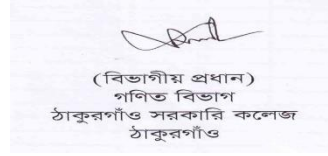 (বিভাগীয় প্রধান)
গণিত বিভাগ
ঠাকুরগাঁও সরকারি কলেজ
ঠাকুরগাঁও